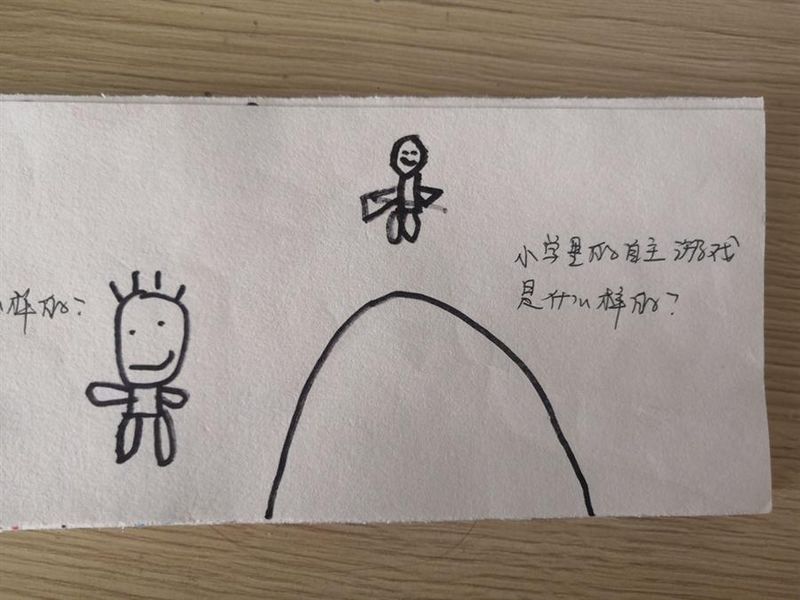 样的?
小学里的自主游戏
是什么样的?